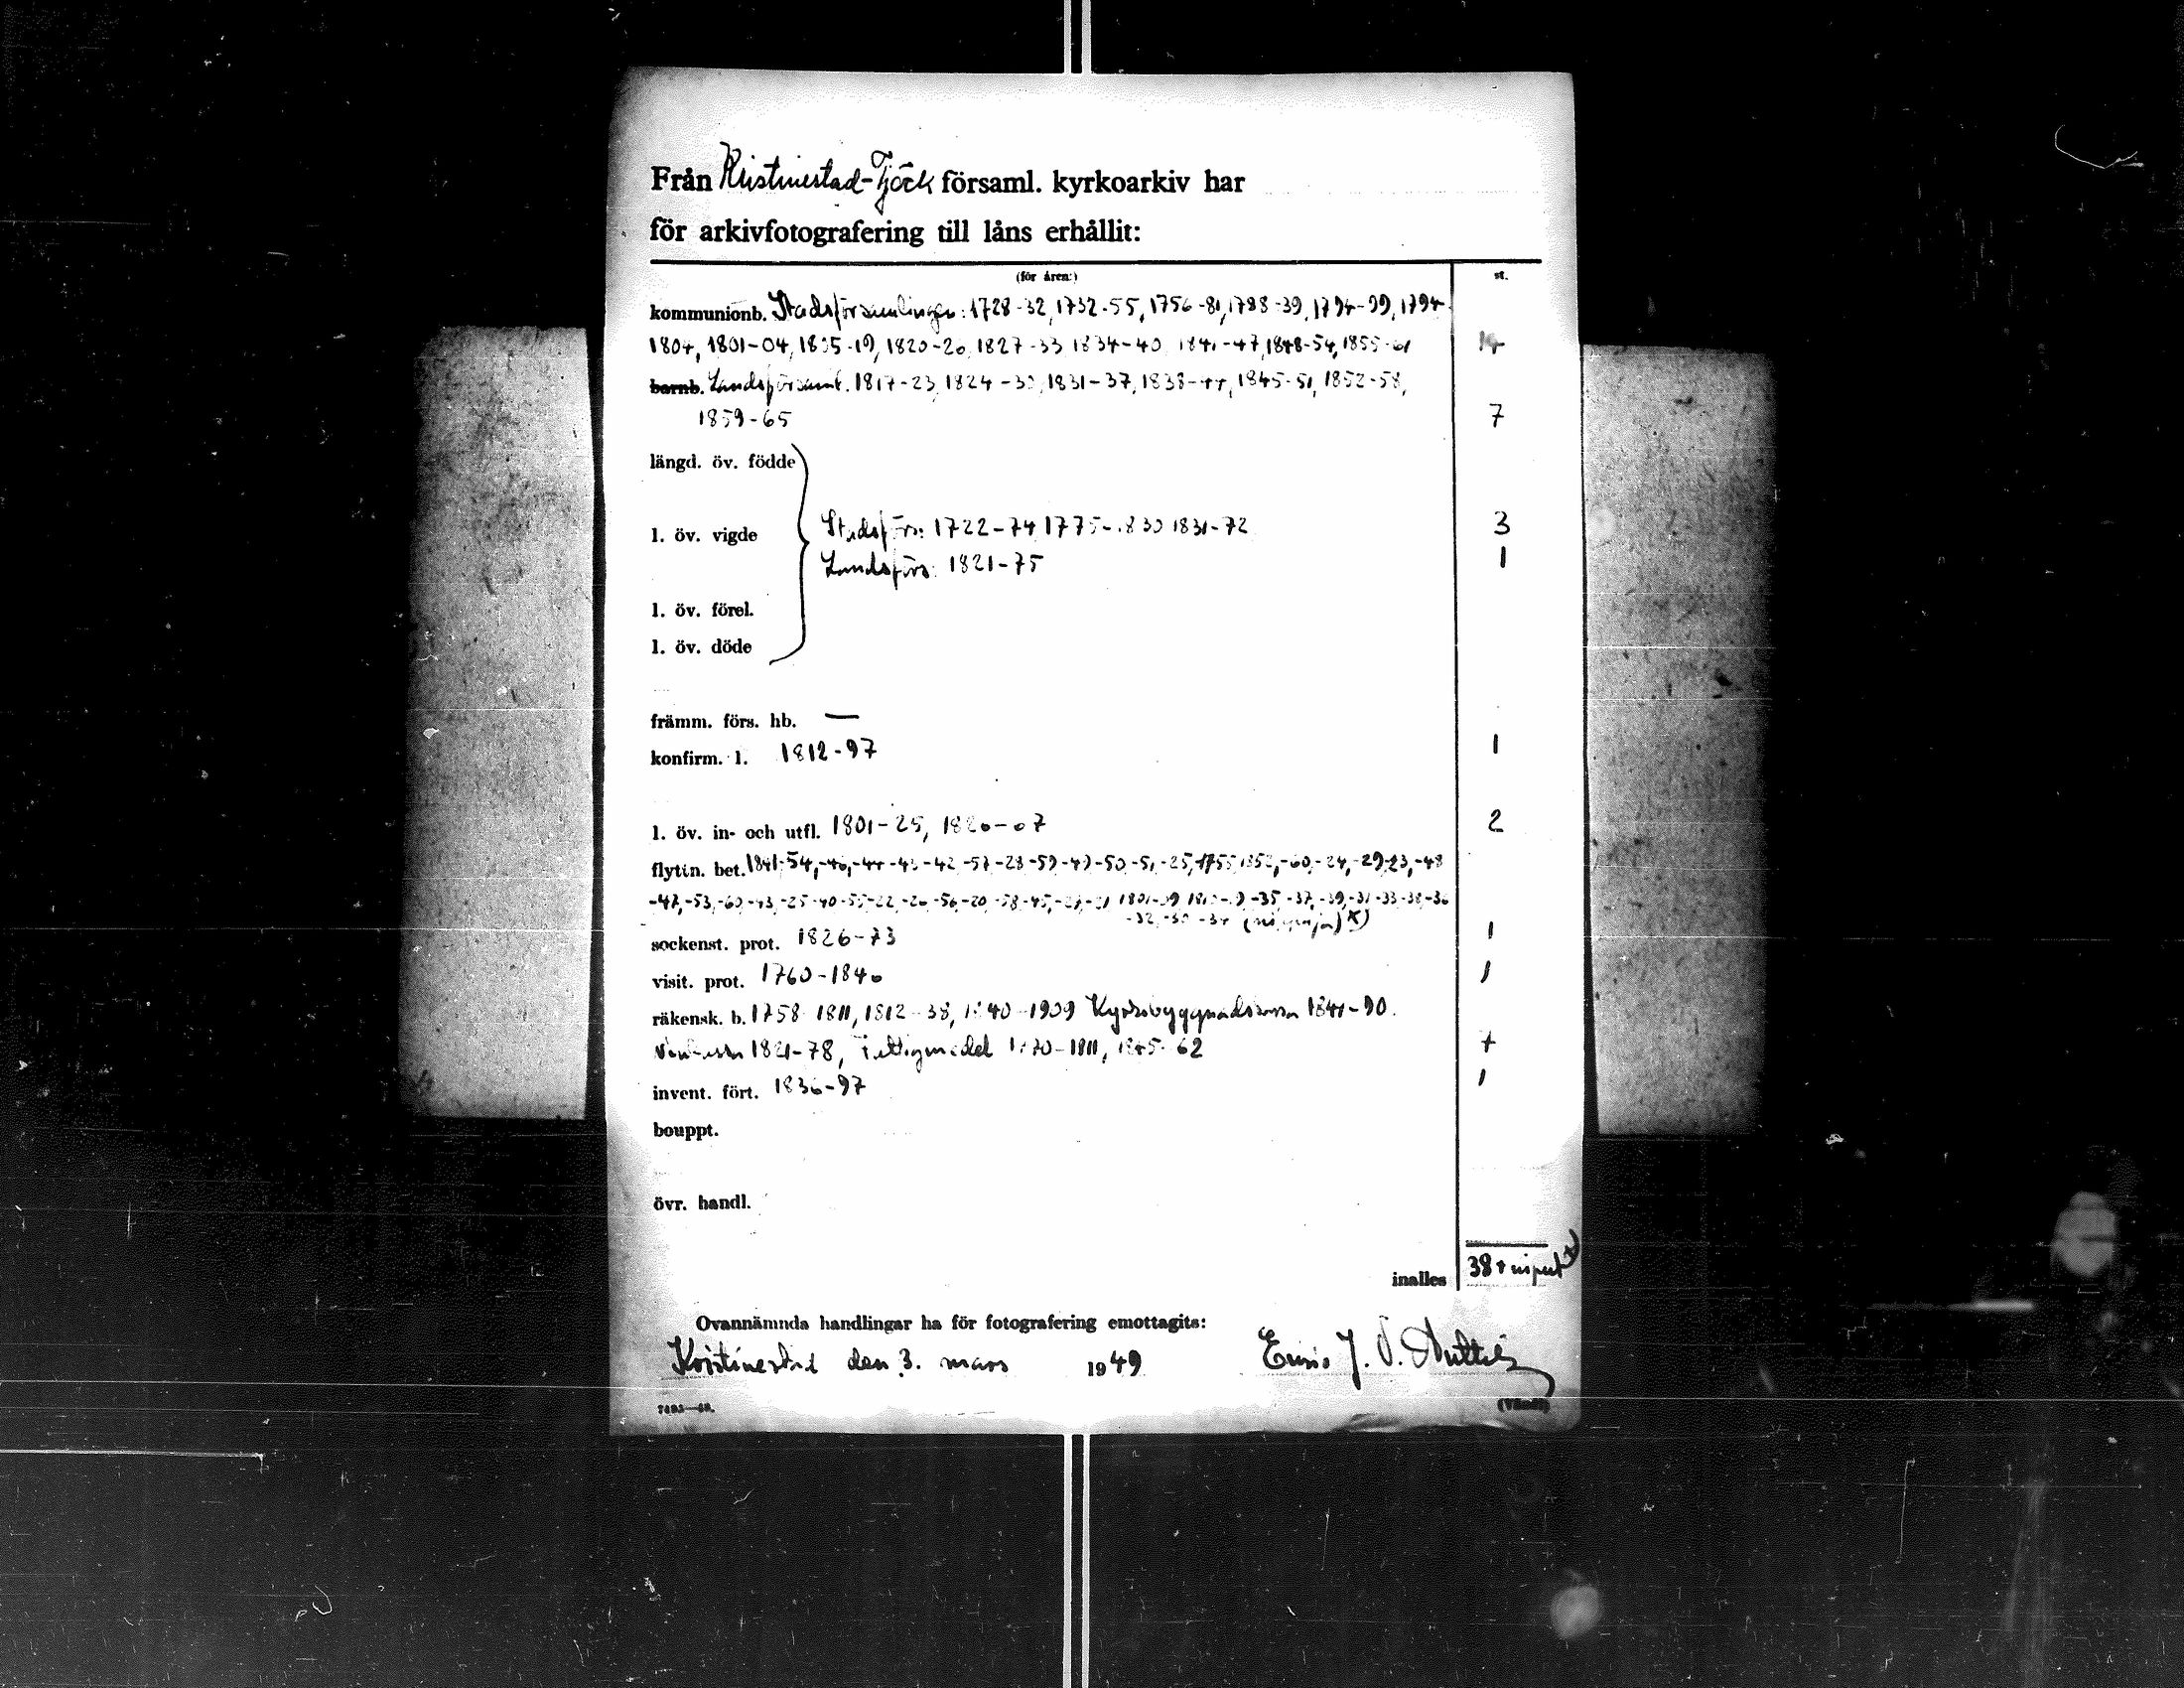 Från Kristinestad-Tjöck församl. kyrkoarkiv har
för arkivfotografering till låns erhållit:
(för åren:) st.
kommunionb. Stadsförsamlingen: 1728-32, 1732-55, 1756-81, 1788-39, 1794-99, 1794-
1804, 1801-04, 1805-19, 1820-26, 1827-33 1834-40 1841-47, 1848-54, 1855-61 14
barnb. Landsförsaml. 1817-23, 1824-30, 1831-37, 1838-44, 1845-51, 1852-58,
1859-65 7
längd. öv. födde
Stadsförs: 1722-74 1775-1830 1831-72 3
l. öv. vigde
Landsförs: 1821-75 1
l. öv. förel.
l. öv. döde
främm. förs. hb. —
konfirm. l. 1812-97 1
l. öv. in- och utfl. 1801-25, 1826-07 2
flyttn. bet. 1841-54, -46, -44 -43 -42 -57 -28 -59 -49 -50 -51 -25, 1755 1852, -60, -24, -29, 23, -48
-47, -53, -60, -43, -25 -40 -55 -22, -26 -56, -20, -58 -45, -35, -37, -39, -31 -33 -38, -36
-32, -30 -34
sockenst. prot. 1826-73 1
visit. prot. 1760-1840 1
räkensk. b. 1758-1811, 1812-38, 1840-1909 Kyrkobyggnadskassa 1841-90.
1821-78, Fattigmedel 1770-1811, 1845-62 7
invent. fört. 1836-97 1
bouppt.
övr. handl.
inalles 38 +
Ovannämnda handlingar ha för fotografering emottagits:
Kristinestad den 3. mars 1949
(Vänd!)